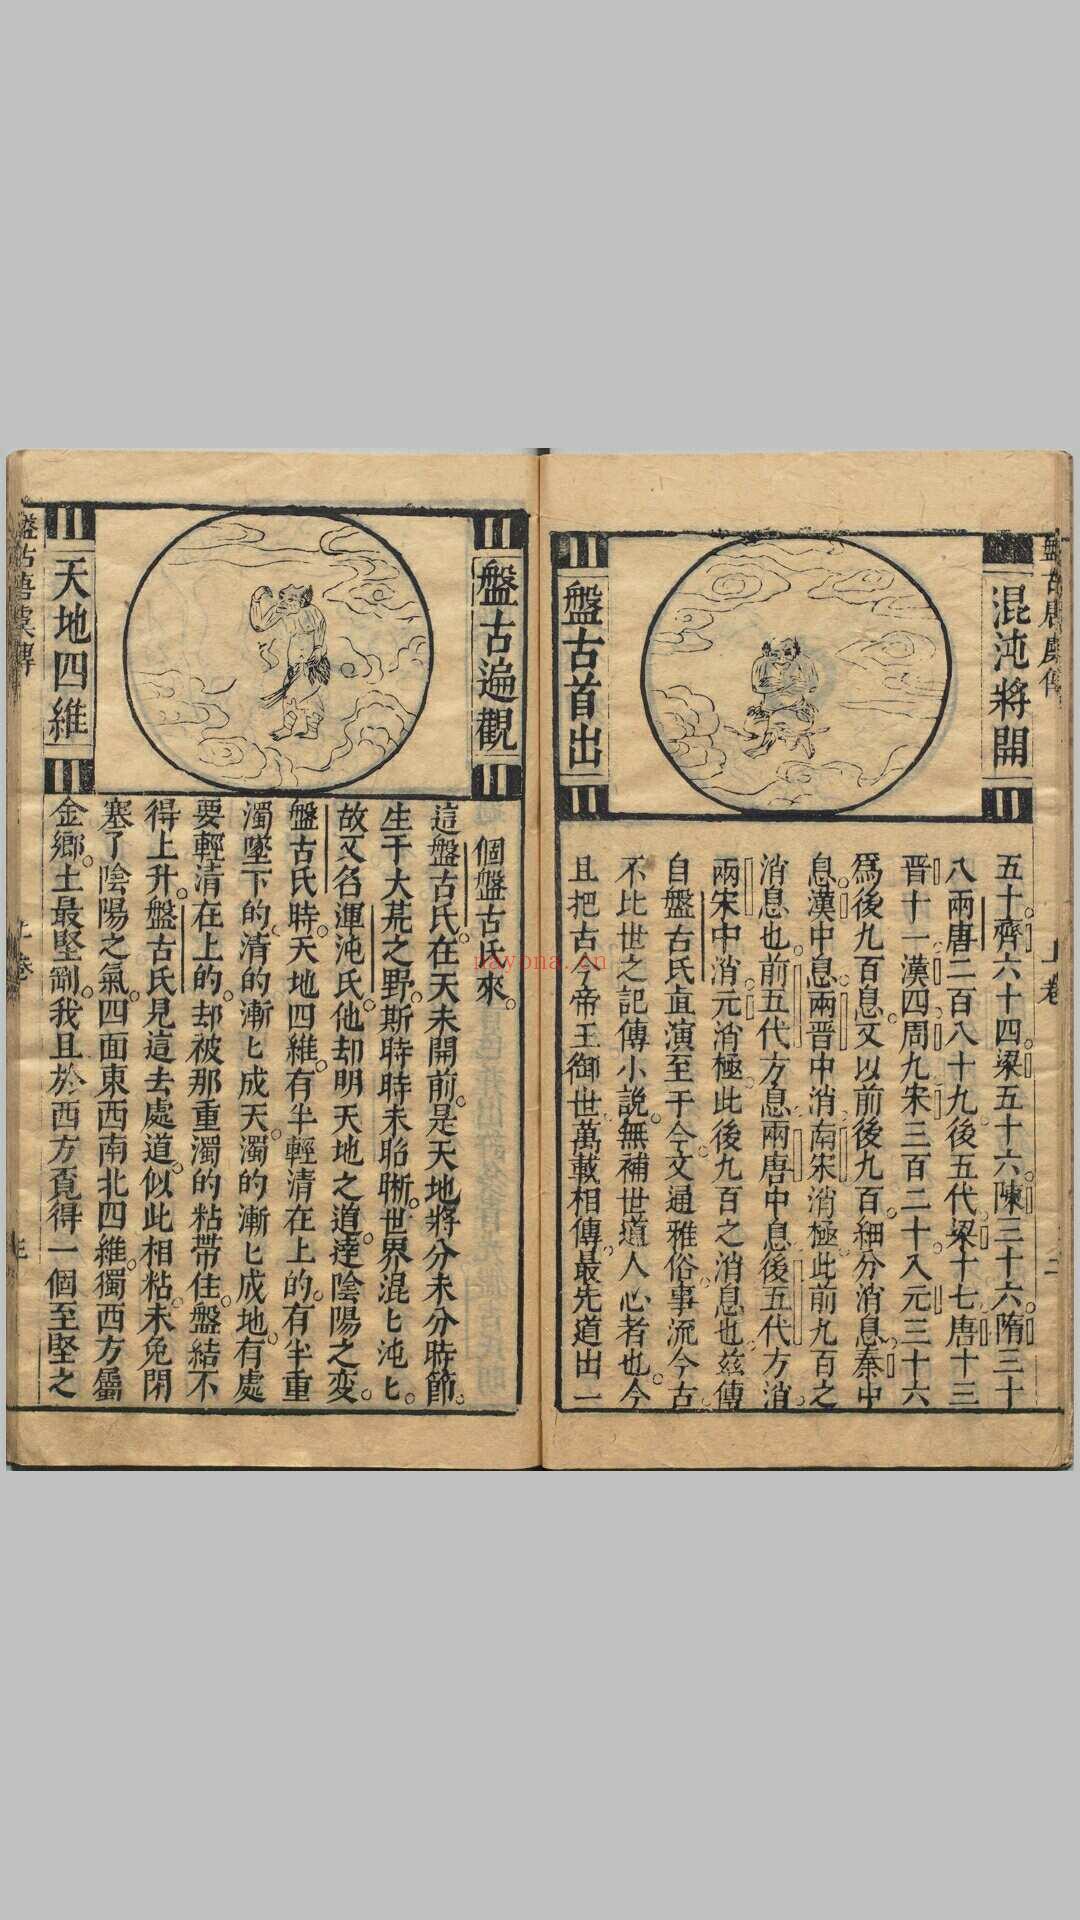 盤古唐虞傳
混沌將開
盤古首出
五十齊六十四梁五十六陳三十六隋三十
八兩唐二百八十九後五代梁十七唐十三
晉十一漢四周九宋三百二十入元三十六
爲後九百息又以前後九百細分消息秦中
息漢中息兩晉中消南宋消極此前九百之
消息也前五代方息兩唐中息後五代方消
兩宋中消元消極此後九百之消息也玆傳
自盤古氏直演至于今文通雅俗事流今古
不比世之記傳小說無補世道人心者也今
且把古今帝王御世萬載相傳最先道出一
上卷
二
盤古遍觀
天地四維
個盤古氏來
這盤古氏在天未開前是天地將分未分時節
生于大荒之野斯時時未昭晣世界混匕沌匕
故又名渾沌氏他却明天地之道達陰陽之变
盤古氏時天地四維有半輕清在上的有半重
濁墜下的清的漸匕成天濁的漸匕成地有處
要輕清在上的却被那重濁的粘帶住盤結不
得上升盤古氏見這去處道似此相粘未免閉
塞了陰陽之氣四面東西南北四維獨西方屬
金鄉土最堅剛我且於西方覔得一個至堅之
盤古唐虞傳
上卷
三
nayona.cn